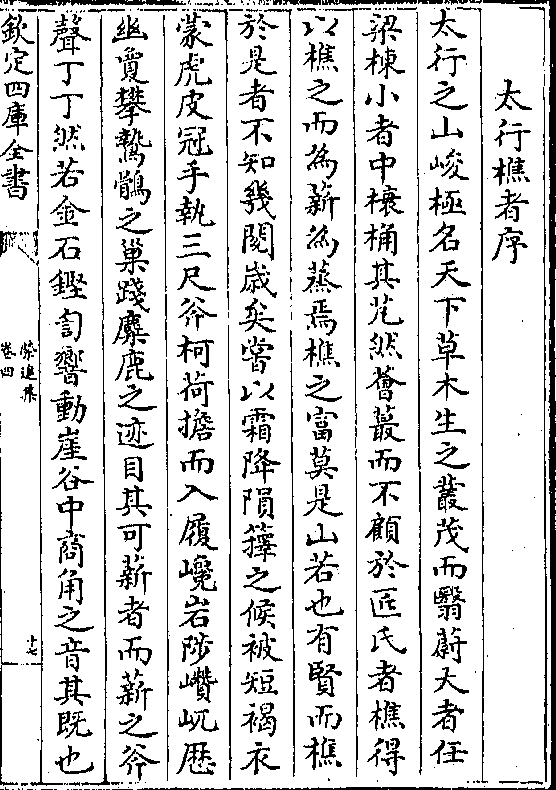 太行樵者序
太行之山峻極名天下草木生之叢茂而翳蔚大者任
梁棟小者中榱桷其芃然薈蕞而不顧於匠氏者樵得
以樵之而為薪為蒸焉樵之富莫是山若也有賢而樵
於是者不知幾閱歳矣甞以霜降隕蘀之候被短褐衣
蒙虎皮冠手執三尺斧柯荷擔而入履巉岩陟巑岏歴
幽實攀鷙鶻之巢踐麋鹿之迹目其可薪者而薪之斧
聲丁丁然若金石鏗訇響動崖谷中商角之音其既也
欽定四庫全書
卷四
十七